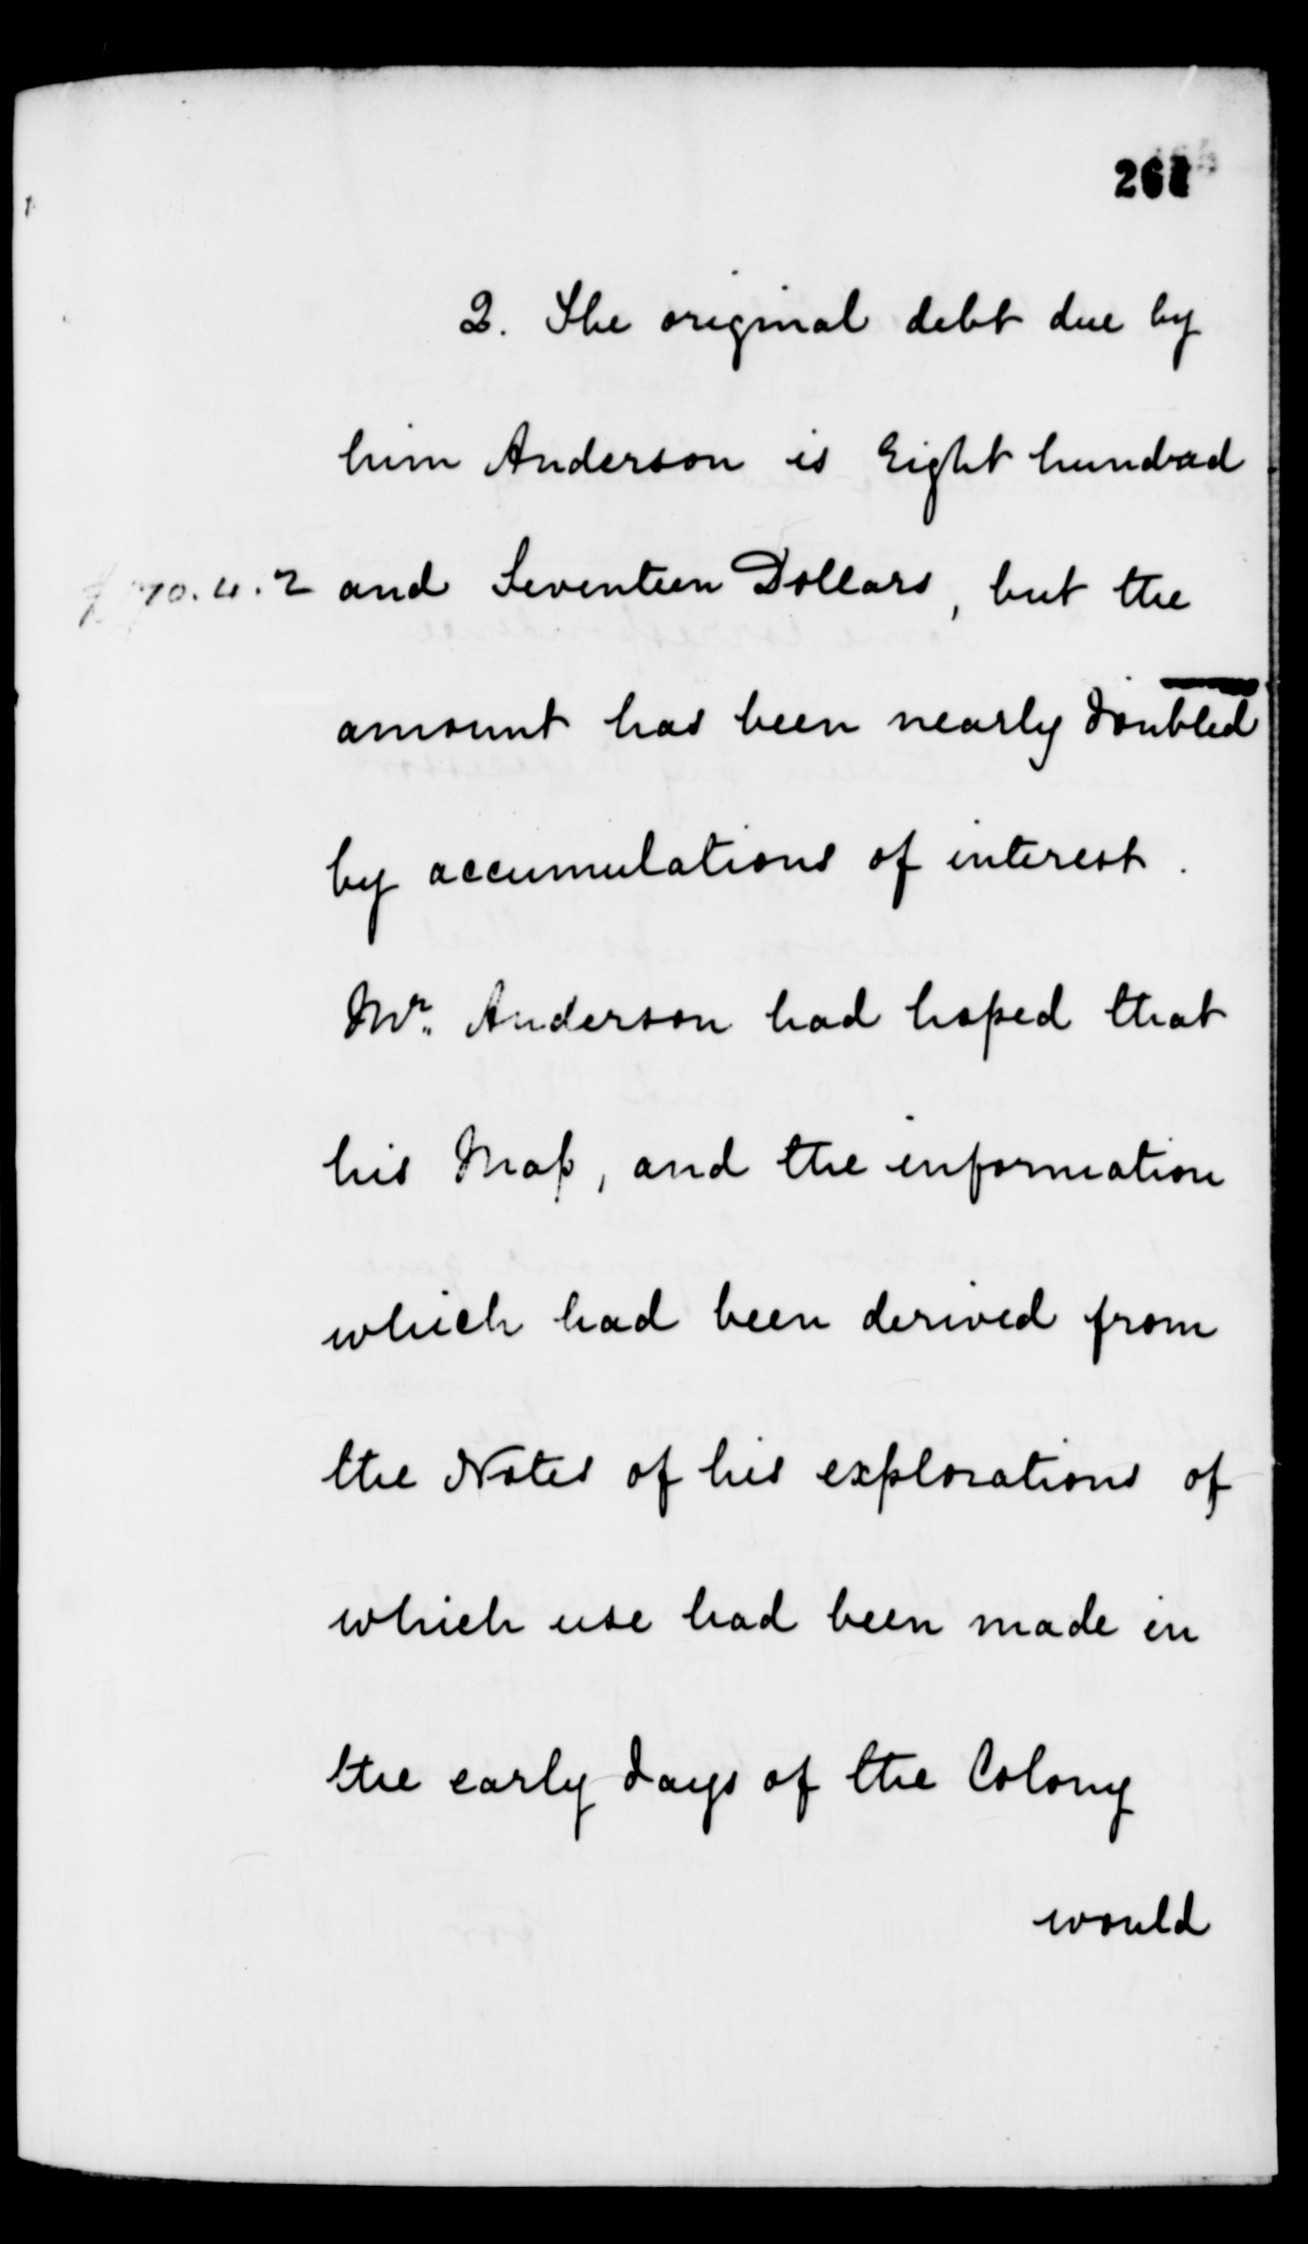 2. The original debt due by
him Anderson is Eight hundred
and Seventeen Dollars, but the
amount has been nearly doubled
by accumulations of interest.
Mr. Anderson had hoped that
his Map, and the information
which had been derived from
the Notes of his explorations of
which use had been made in
the early days of the Colony
would